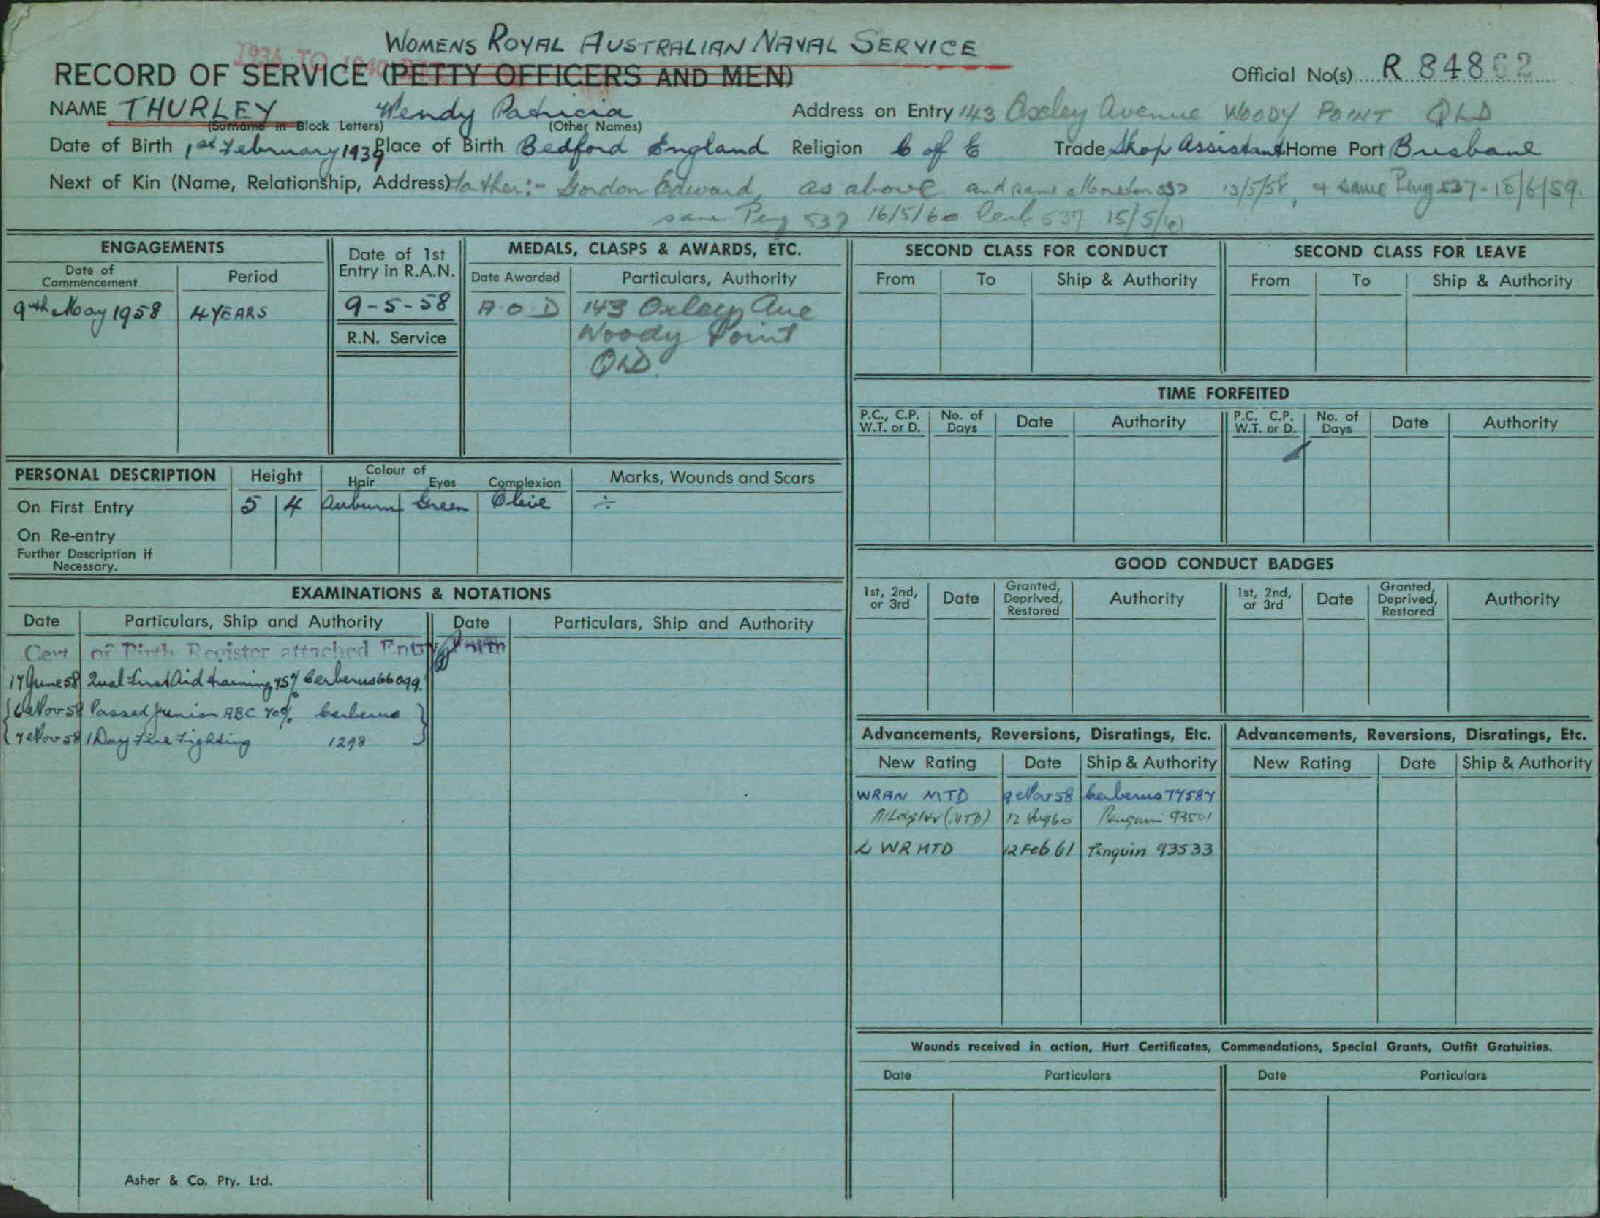 WOMENS ROYAL AUSTRALIAN NAVAL SERVICE
RECORD OF SERVICE (PETTY OFFICERS AND MEN)
Official No(s) R 84862
NAME THURLEY Wendy Patricia Address on Entry 143 Oxley Avenue WOODY POINT QLD
(Surname in Block Letters) (Other Names)
Date of Birth 1st February 1939 Place of Birth Bedford England Religion C of E Trade Shop Assistant Home Port Brisbane
Next of Kin (Name, Relationship, Address) father:- Gordon Edward, as above and same 13/5/58, & same Peng 537 - 18/6/59.
same Peng 537 16/5/60 537 15/5/61
ENGAGEMENTS
Date of Commencement Period
9th May 1958 4 YEARS
Date of 1st Entry in R.A.N.
9-5-58
R.N. Service
MEDALS, CLASPS & AWARDS, ETC.
Date Awarded Particulars, Authority
A.O.D 143 Oxley Ave
Woody Point
QLD.
SECOND CLASS FOR CONDUCT
From To Ship & Authority
SECOND CLASS FOR LEAVE
From To Ship & Authority
TIME FORFEITED
P.C., C.P. W.T. or D. No. of Days Date Authority P.C. C.P. W.T. or D. No. of Days Date Authority
PERSONAL DESCRIPTION Height Colour of Hair Eyes Complexion Marks, Wounds and Scars
On First Entry 5 4 Auburn Green Olive ÷
On Re-entry
Further Description if Necessary.
GOOD CONDUCT BADGES
1st, 2nd, or 3rd Date Granted, Deprived, Restored Authority 1st, 2nd, or 3rd Date Granted, Deprived, Restored Authority
EXAMINATIONS & NOTATIONS
Date Particulars, Ship and Authority Date Particulars, Ship and Authority
Cert of Birth Register attached Entry
17 June 58 Qual First Aid training 75% Cerberus 66099
6 Nov 58 Passed Junior ABC 70% Cerberus
7 Nov 58 1 Day Fire Fighting 1298
Advancements, Reversions, Disratings, Etc. Advancements, Reversions, Disratings, Etc.
New Rating Date Ship & Authority New Rating Date Ship & Authority
WRAN MTD 9 Nov 58 Cerberus 77587
(MTD) 12 Aug 60 Penguin 93501
L WR MTD 12 Feb 61 Penguin 93533
Wounds received in action, Hurt Certificates, Commendations, Special Grants, Outfit Gratuities.
Date Particulars Date Particulars
Asher & Co. Pty. Ltd.